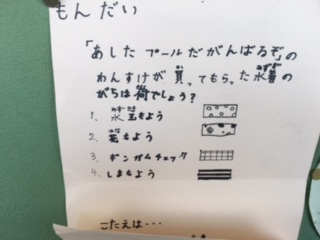 もんだい
「あした プールだがんばるぞ」の
わんすけが買ってもらった水着の
がらは何でしょう？
1. 水玉もよう
2. 花もよう
3. ギンガムチェック
4. しまもよう
こたえは・・・